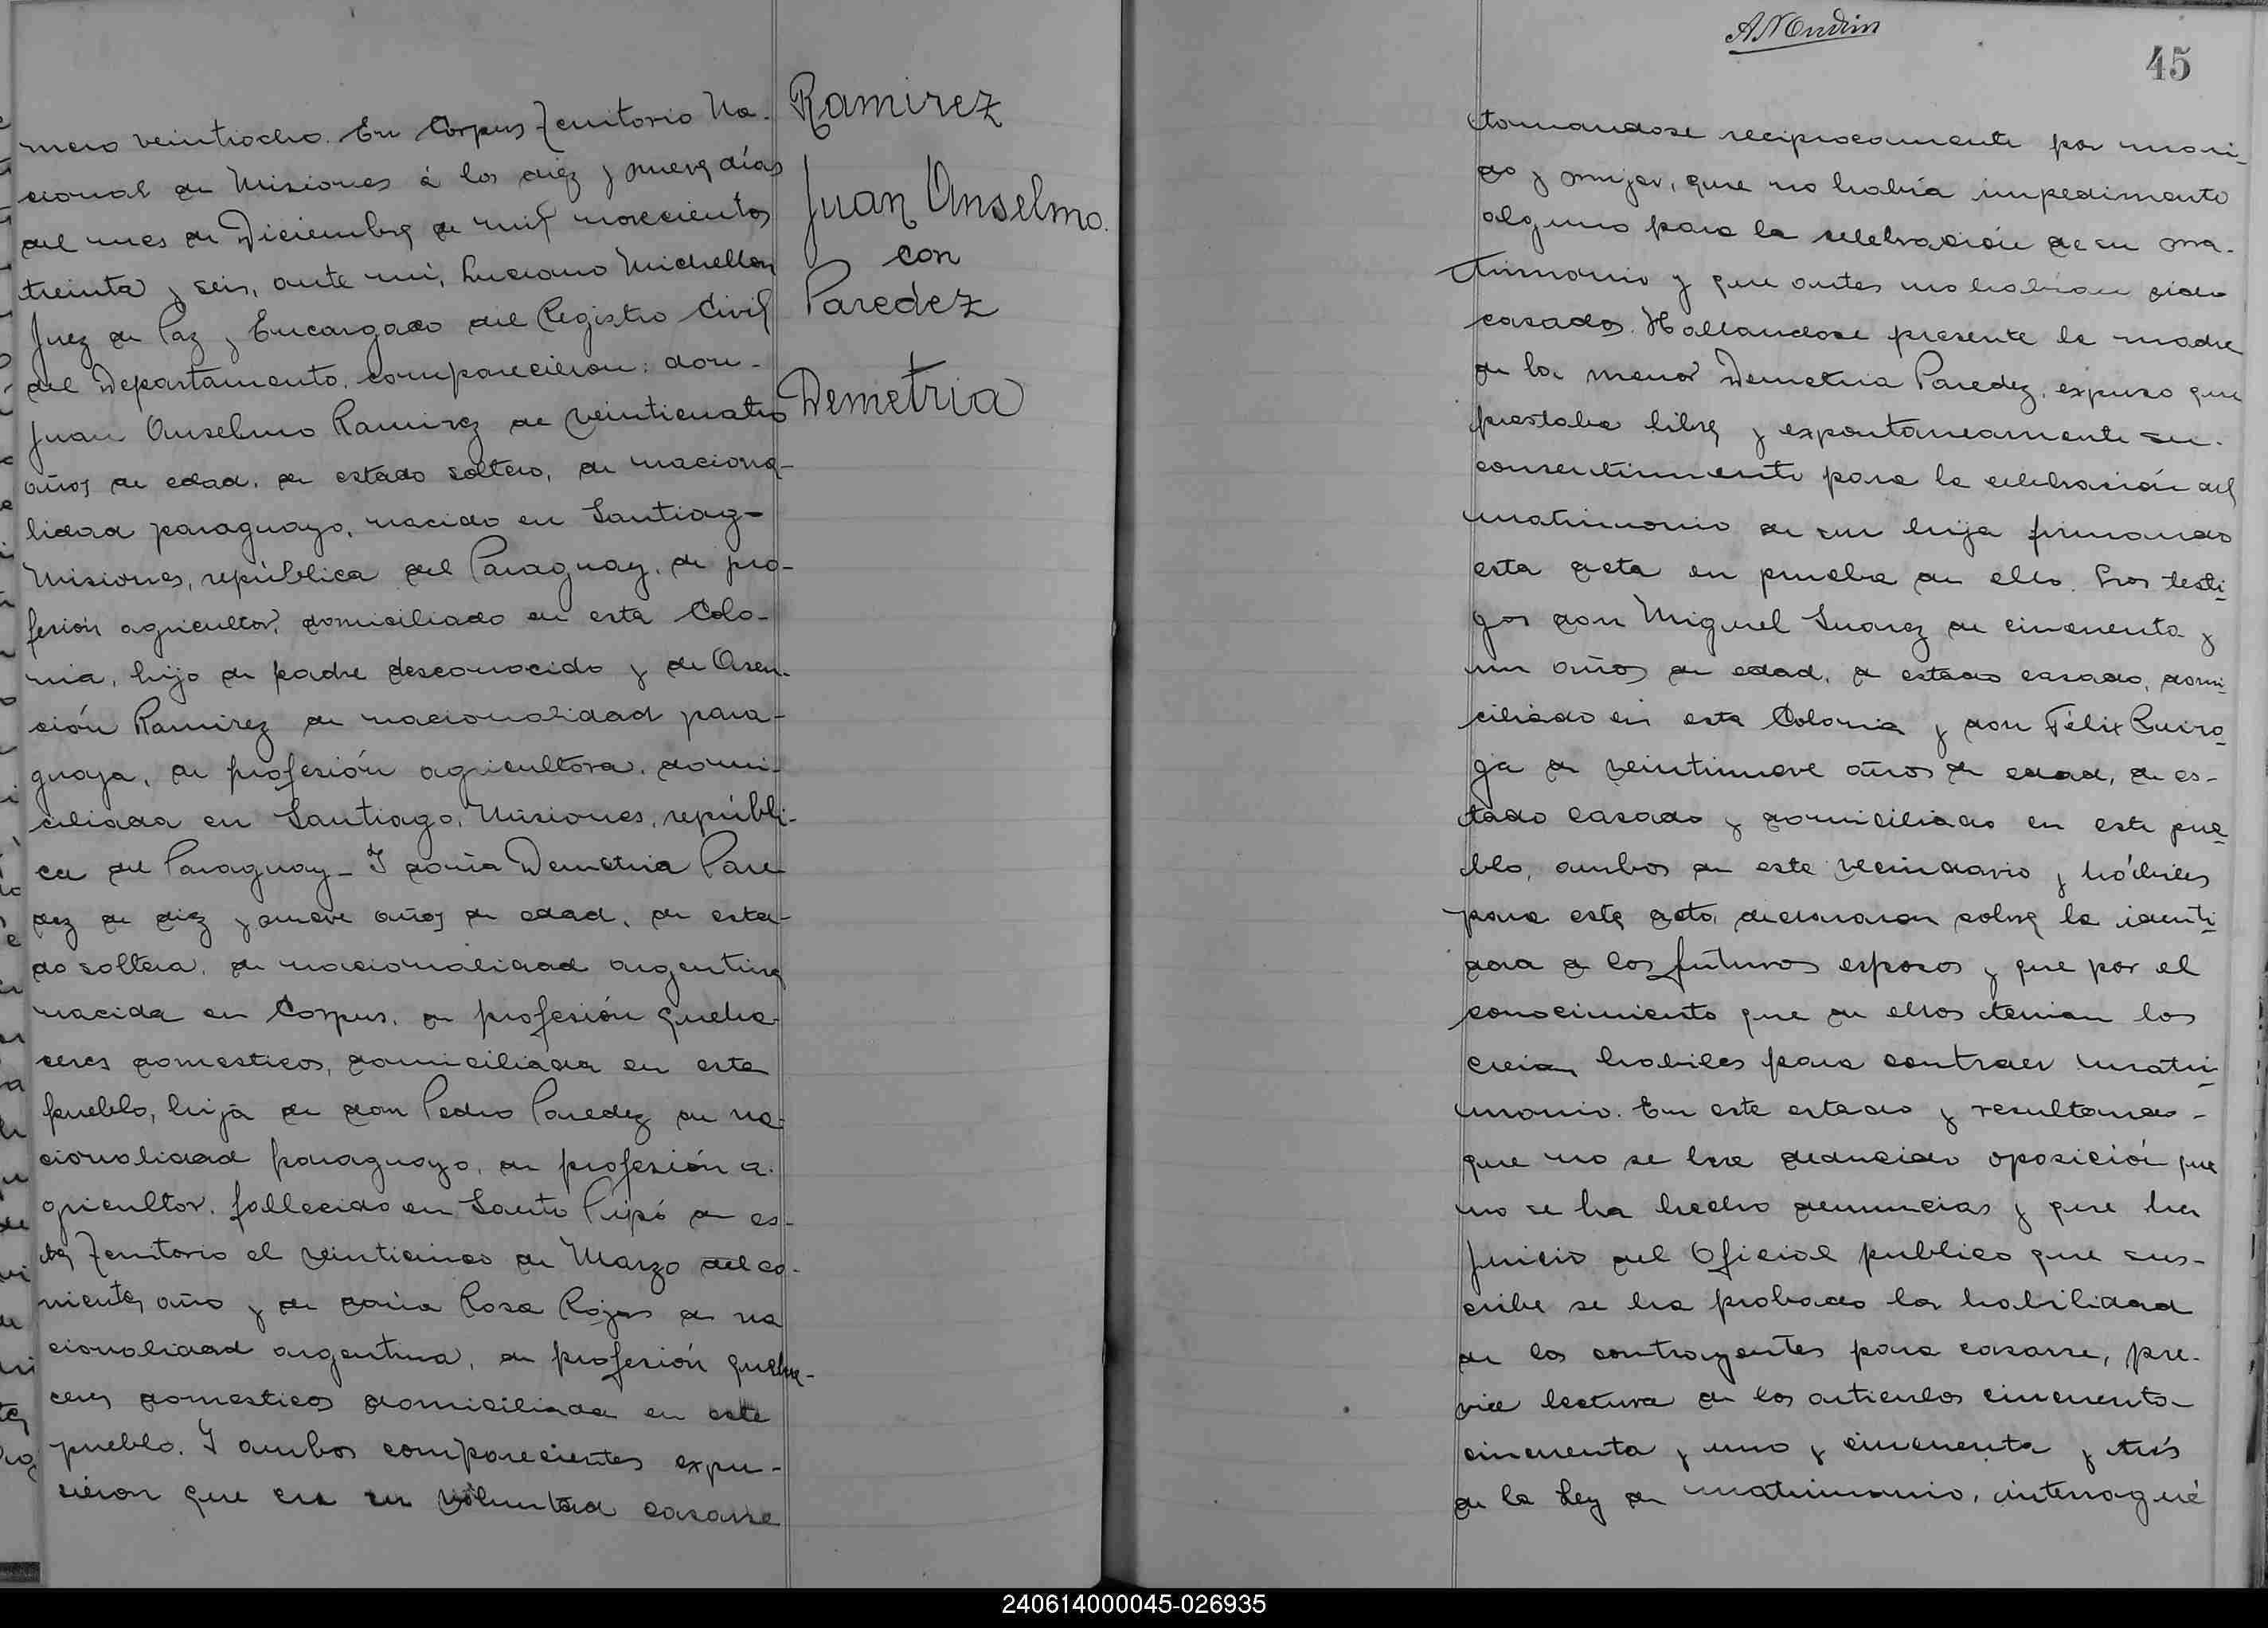 mero veintiocho. En Corpus Territorio Na-
cional de Misiones á los diez y nueve días
del mes de Diciembre de mil novecientos
treinta y seis, ante mi, Luciano Michellon
Juez de Paz y Encargado del Registro Civil
del Departamento, comparecieron: don-
Juan Anselmo Ramirez de veinticuatro
años de edad, de estado soltero, de naciona-
lidad paraguayo, nacido en Santiago-
Misiones, república del Paraguay, de pro-
fesión agricultor, domiciliado en esta Colo-
nia, hijo de padre desconocido y de Asen-
ción Ramirez de nacionalidad para-
guaya, de profesión agricultora, domi-
ciliada en Santiago, Misiones, repúbli-
ca del Paraguay_ Y doña Demetria Pare
dez de diez y nueve años de edad, de esta-
do soltera, de nacionalidad argentina
nacida en Corpus, de profesión queha-
ceres domesticos, domiciliada en este
pueblo, hija de don Pedro Paredez de na-
cionalidad paraguayo, de profesión a-
gricultor, fallecido en Santo Pipó de es-
te Territorio el veinticinco de Marzo del co-
rriente año y de doña Rosa Rojas de na
cionalidad argentina, de profesión queha-
ceres domesticos domiciliada en este
pueblo. Y ambos comparecientes expu-
sieron que era su voluntad casarse
Ramirez
Juan Anselmo.
con
Paredez
Demetria
45
tomandose reciprocamente por mari-
do y mujer, que no había impedimento
alguno para la celebración de su ma-
trimonio y que antes no habían sido
casados. Hallandose presente la madre
de la menor Demetria Paredez, expuso que
prestaba libre y expontaneamente su-
consentimiento para la celebración del
matrimonio de su hija firmando
esta acta en prueba de ello. Los testi-
gos don Miguel Suarez de cincuenta y
un años de edad, de estado casado, domi-
ciliado en esta Colonia y don Félix Quiro-
ga de veintinueve años de edad, de es-
tado casado y domiciliado en este pue-
blo, ambos de este vecindario y hábiles
para este acto, declararon sobre la identi-
dad de los futuros esposos y que por el
conocimiento que de ellos tenian los
creian habiles para contraer matri-
monio. En este estado y resultando-
que no se ha deducido oposición que
no se ha hecho denuncias y que ha
juicio del Oficial publico que sus-
cribe se ha probado la habilidad
de los contrayentes para casarse, pre-
via lectura de los articulos cincuenta-
cincuenta y uno y cincuenta y trés
de la Ley de matrimonio, interrogué
240614000045-026935